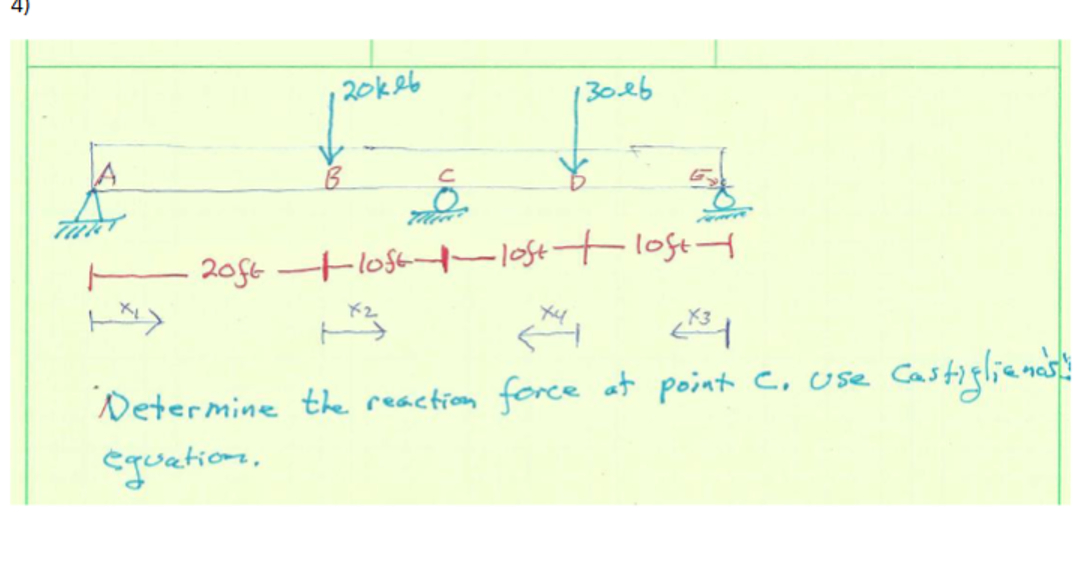 4)
20klb
30lb
A
B
C
D
20ft
10ft
10ft
10ft
x1
x2
x4
x3
Determine the reaction force at point C. Use Castigliano's
equation.